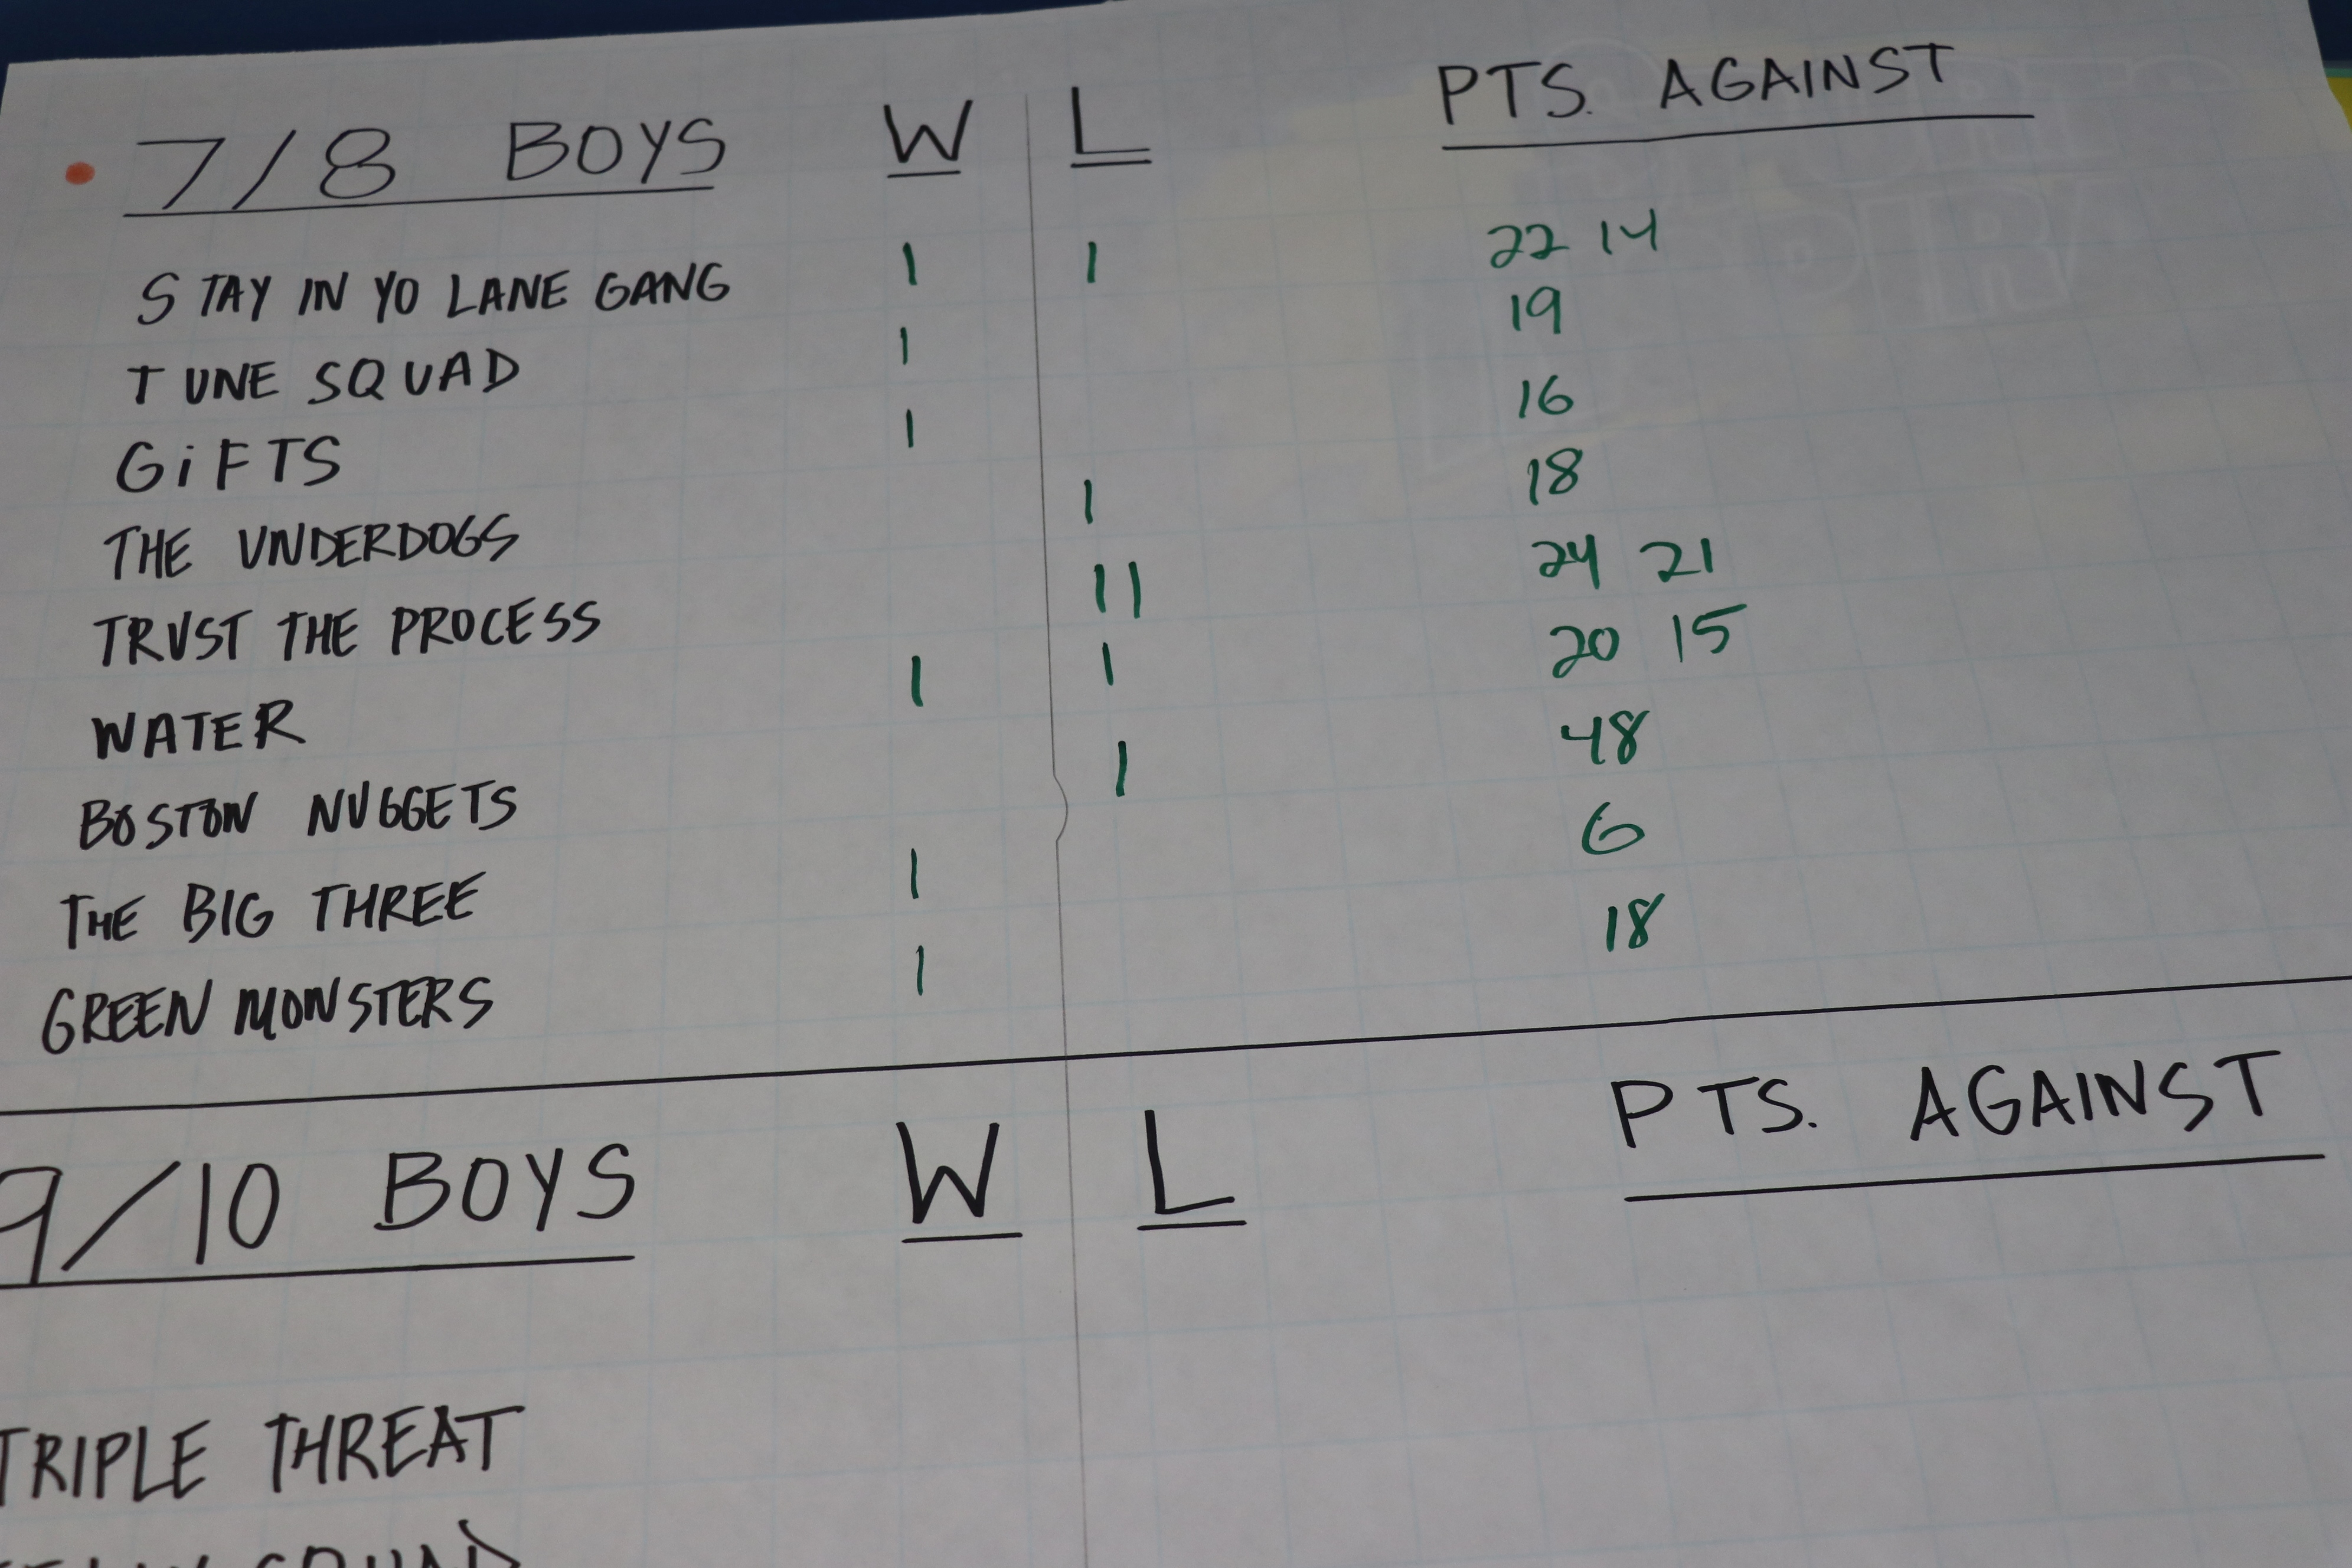 7/8 BOYS W L PTS. AGAINST
STAY IN YO LANE GANG 1 1 22 14
TUNE SQUAD 1 19
GiFTS 1 16
THE UNDERDOGS 1 18
TRUST THE PROCESS 11 24 21
WATER 1 1 20 15
BOSTON NUGGETS 1 48
THE BIG THREE 1 6
GREEN MONSTERS 1 18
9/10 BOYS W L PTS. AGAINST
TRIPLE THREAT
SQUAD